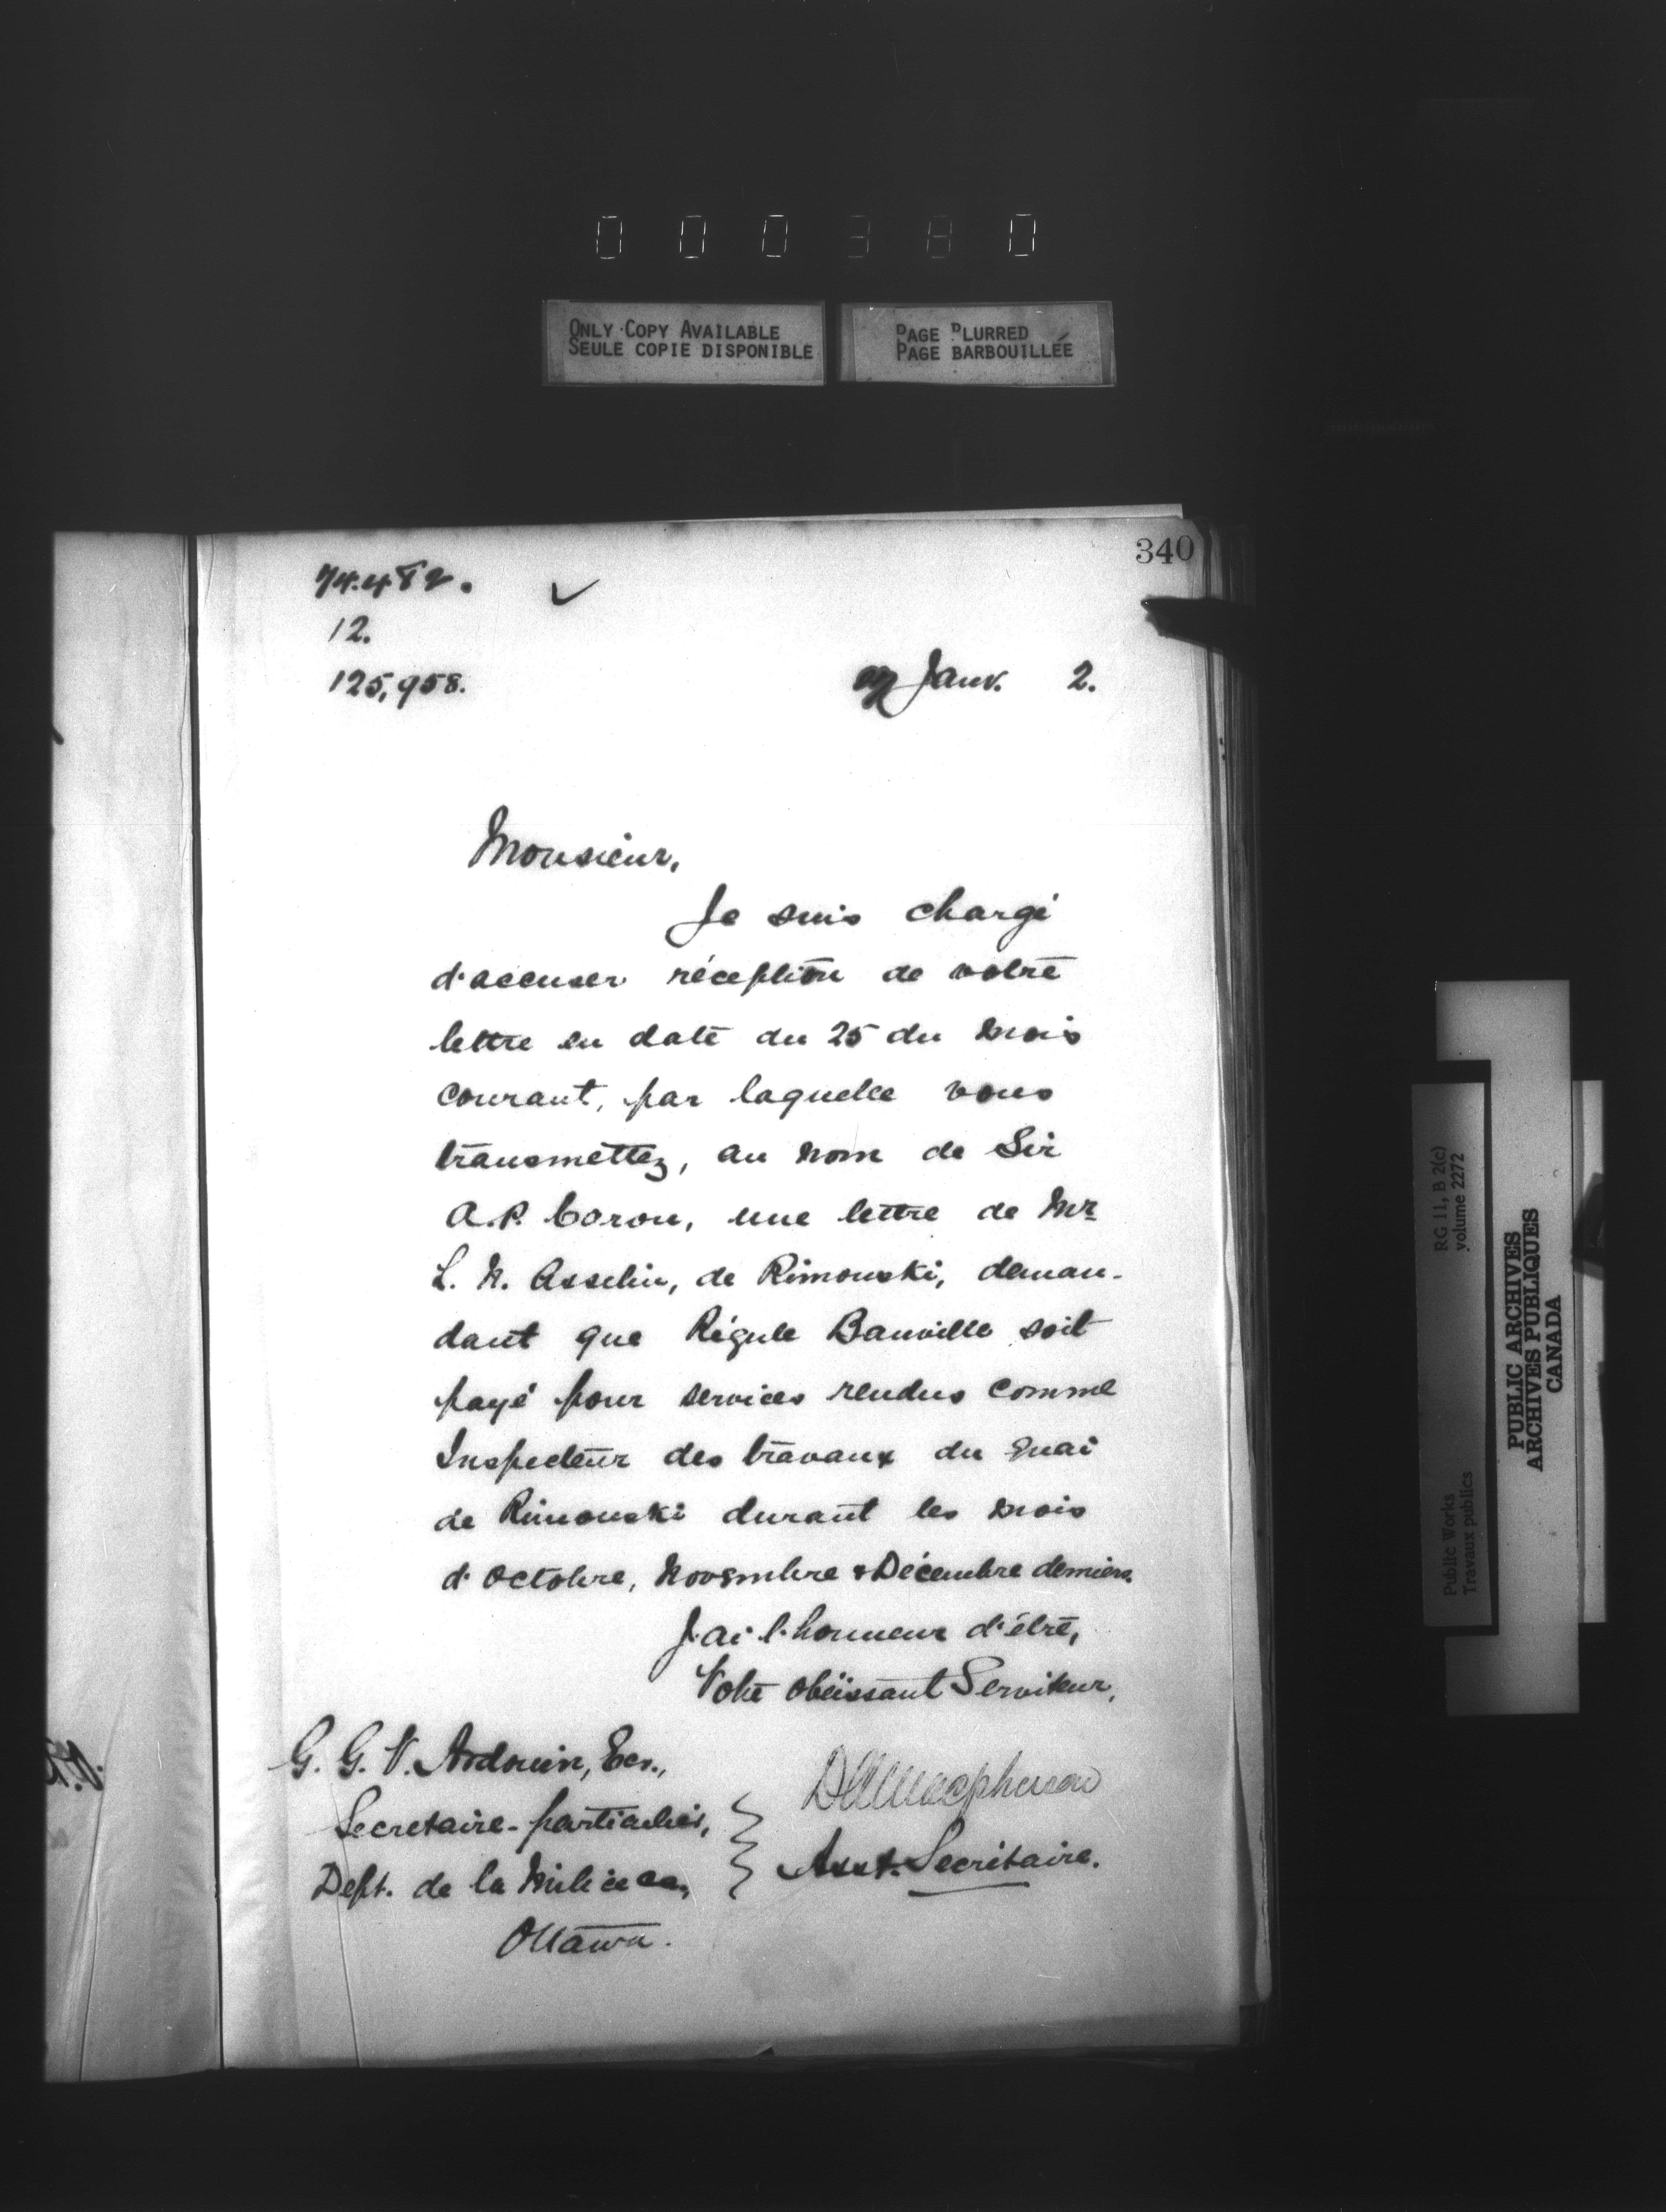 000380
ONLY COPY AVAILABLE
SEULE COPIE DISPONIBLE
PAGE BLURRED
PAGE BARBOUILLÉE
340
74.482.
12.
125,958.
Janv. 2.
Monsieur,
Je suis chargé
d'accuser réception de votre
lettre en date du 25 du mois
courant, par laquelle vous
transmettez, au nom de Sir
A. P. Caron, une lettre de Mr
L. N. Asselin, de Rimouski, deman-
dant que Régule Banville soit
payé pour services rendus comme
Inspecteur des travaux du quai
de Rimouski durant les mois
d'Octobre, Novembre & Décembre derniers.
J'ai l'honneur d'être,
Votre obéissant Serviteur,
G. G. V. Ardouin, Ecr.,
Secretaire-particulier,
Dept. de la Milice
Ottawa.
Asst. Secrétaire.
RG 11, B 2(c)
volume 2272
Public Works
Travaux publics
PUBLIC ARCHIVES
ARCHIVES PUBLIQUES
CANADA